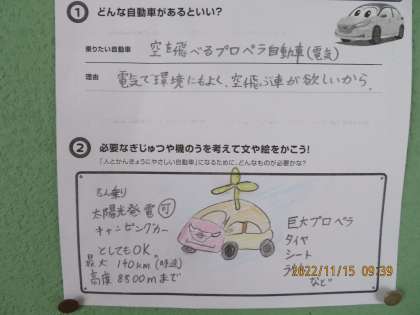 1 どんな自動車があるといい?
乗りたい自動車 空を飛べるプロペラ自動車(電気)
理由 電気で環境にもよく、空飛ぶ車が欲しいから。
2 必要なぎじゅつや機のうを考えて文や絵をかこう!
「人とかんきょうにやさしい自動車」になるために、どんなものが必要かな?
太陽光発電可
キャンピングカー
としてもOK
最大 140km(時速)
高度 8500mまで
巨大プロペラ
タイヤ
シート
など
2022/11/15 09:39